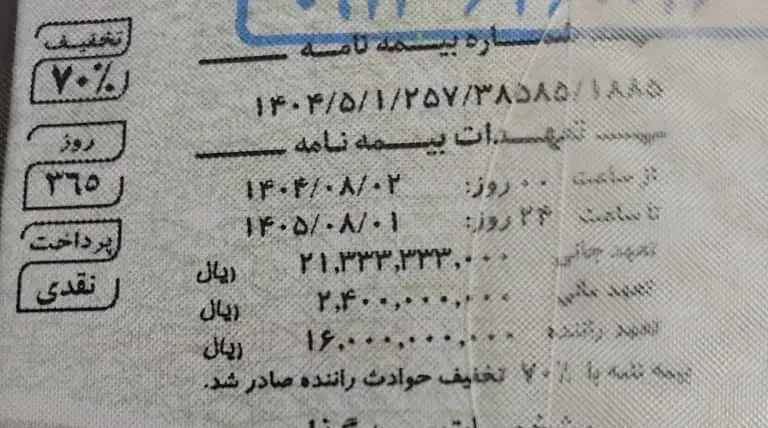 شماره بیمه نامه
۱۴۰۴/۵/۱/۲۵۷/۳۸۵۸۵/۱۸۸۵
تعهدات بیمه نامه
از ساعت ۰۰ روز: ۱۴۰۴/۰۸/۰۲
تا ساعت ۲۴ روز: ۱۴۰۵/۰۸/۰۱
تعهد جانی ۲۱,۳۳۳,۳۳۳,۰۰۰ ریال
تعهد مالی ۲,۴۰۰,۰۰۰,۰۰۰ ریال
تعهد راننده ۱۶,۰۰۰,۰۰۰,۰۰۰ ریال
بیمه نامه با ۷۰٪ تخفیف حوادث راننده صادر شد.
تخفیف
۷۰٪
روز
۳۶۵
پرداخت
نقدی